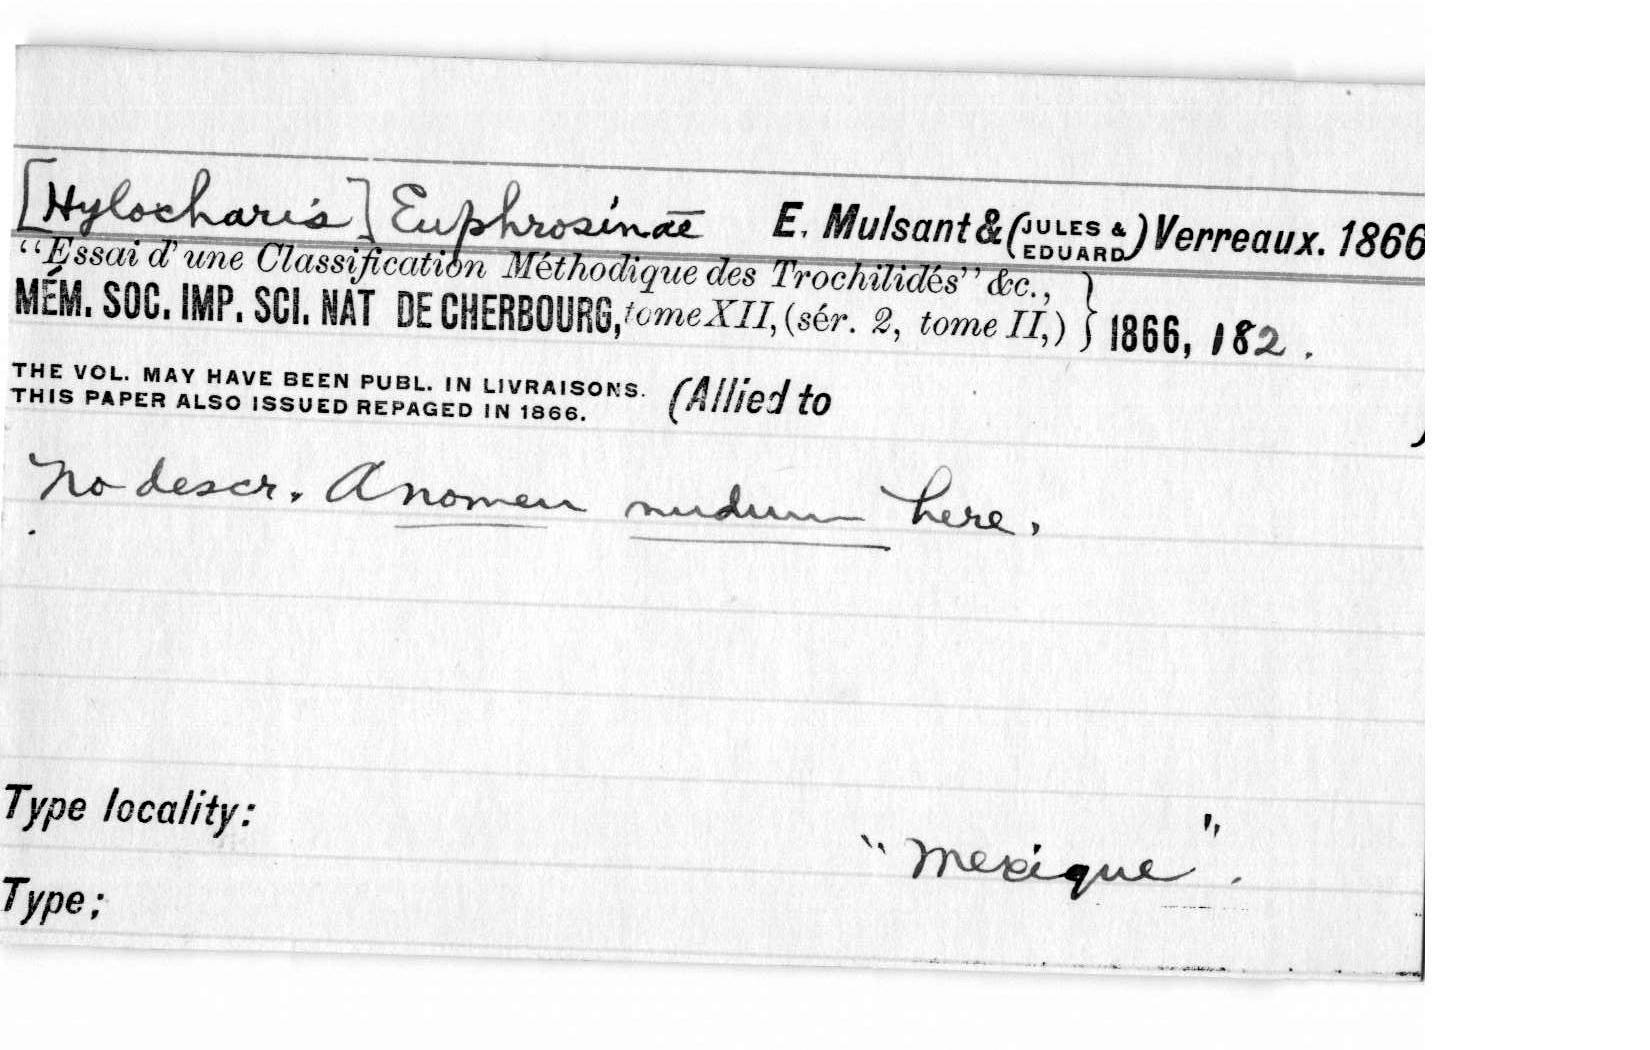 [Hylocharis] Euphrosinae E. Mulsant & (JULES & EDUARD) Verreaux. 1866
"Essai d'une Classification Méthodique des Trochilidés" &c.,
MÉM. SOC. IMP. SCI. NAT DE CHERBOURG, tome XII, (sér. 2, tome II,) } 1866, 182.
THE VOL. MAY HAVE BEEN PUBL. IN LIVRAISONS.
THIS PAPER ALSO ISSUED REPAGED IN 1866. (Allied to )
No descr. A nomen nudum here.
Type locality:
"Mexique".
Type;